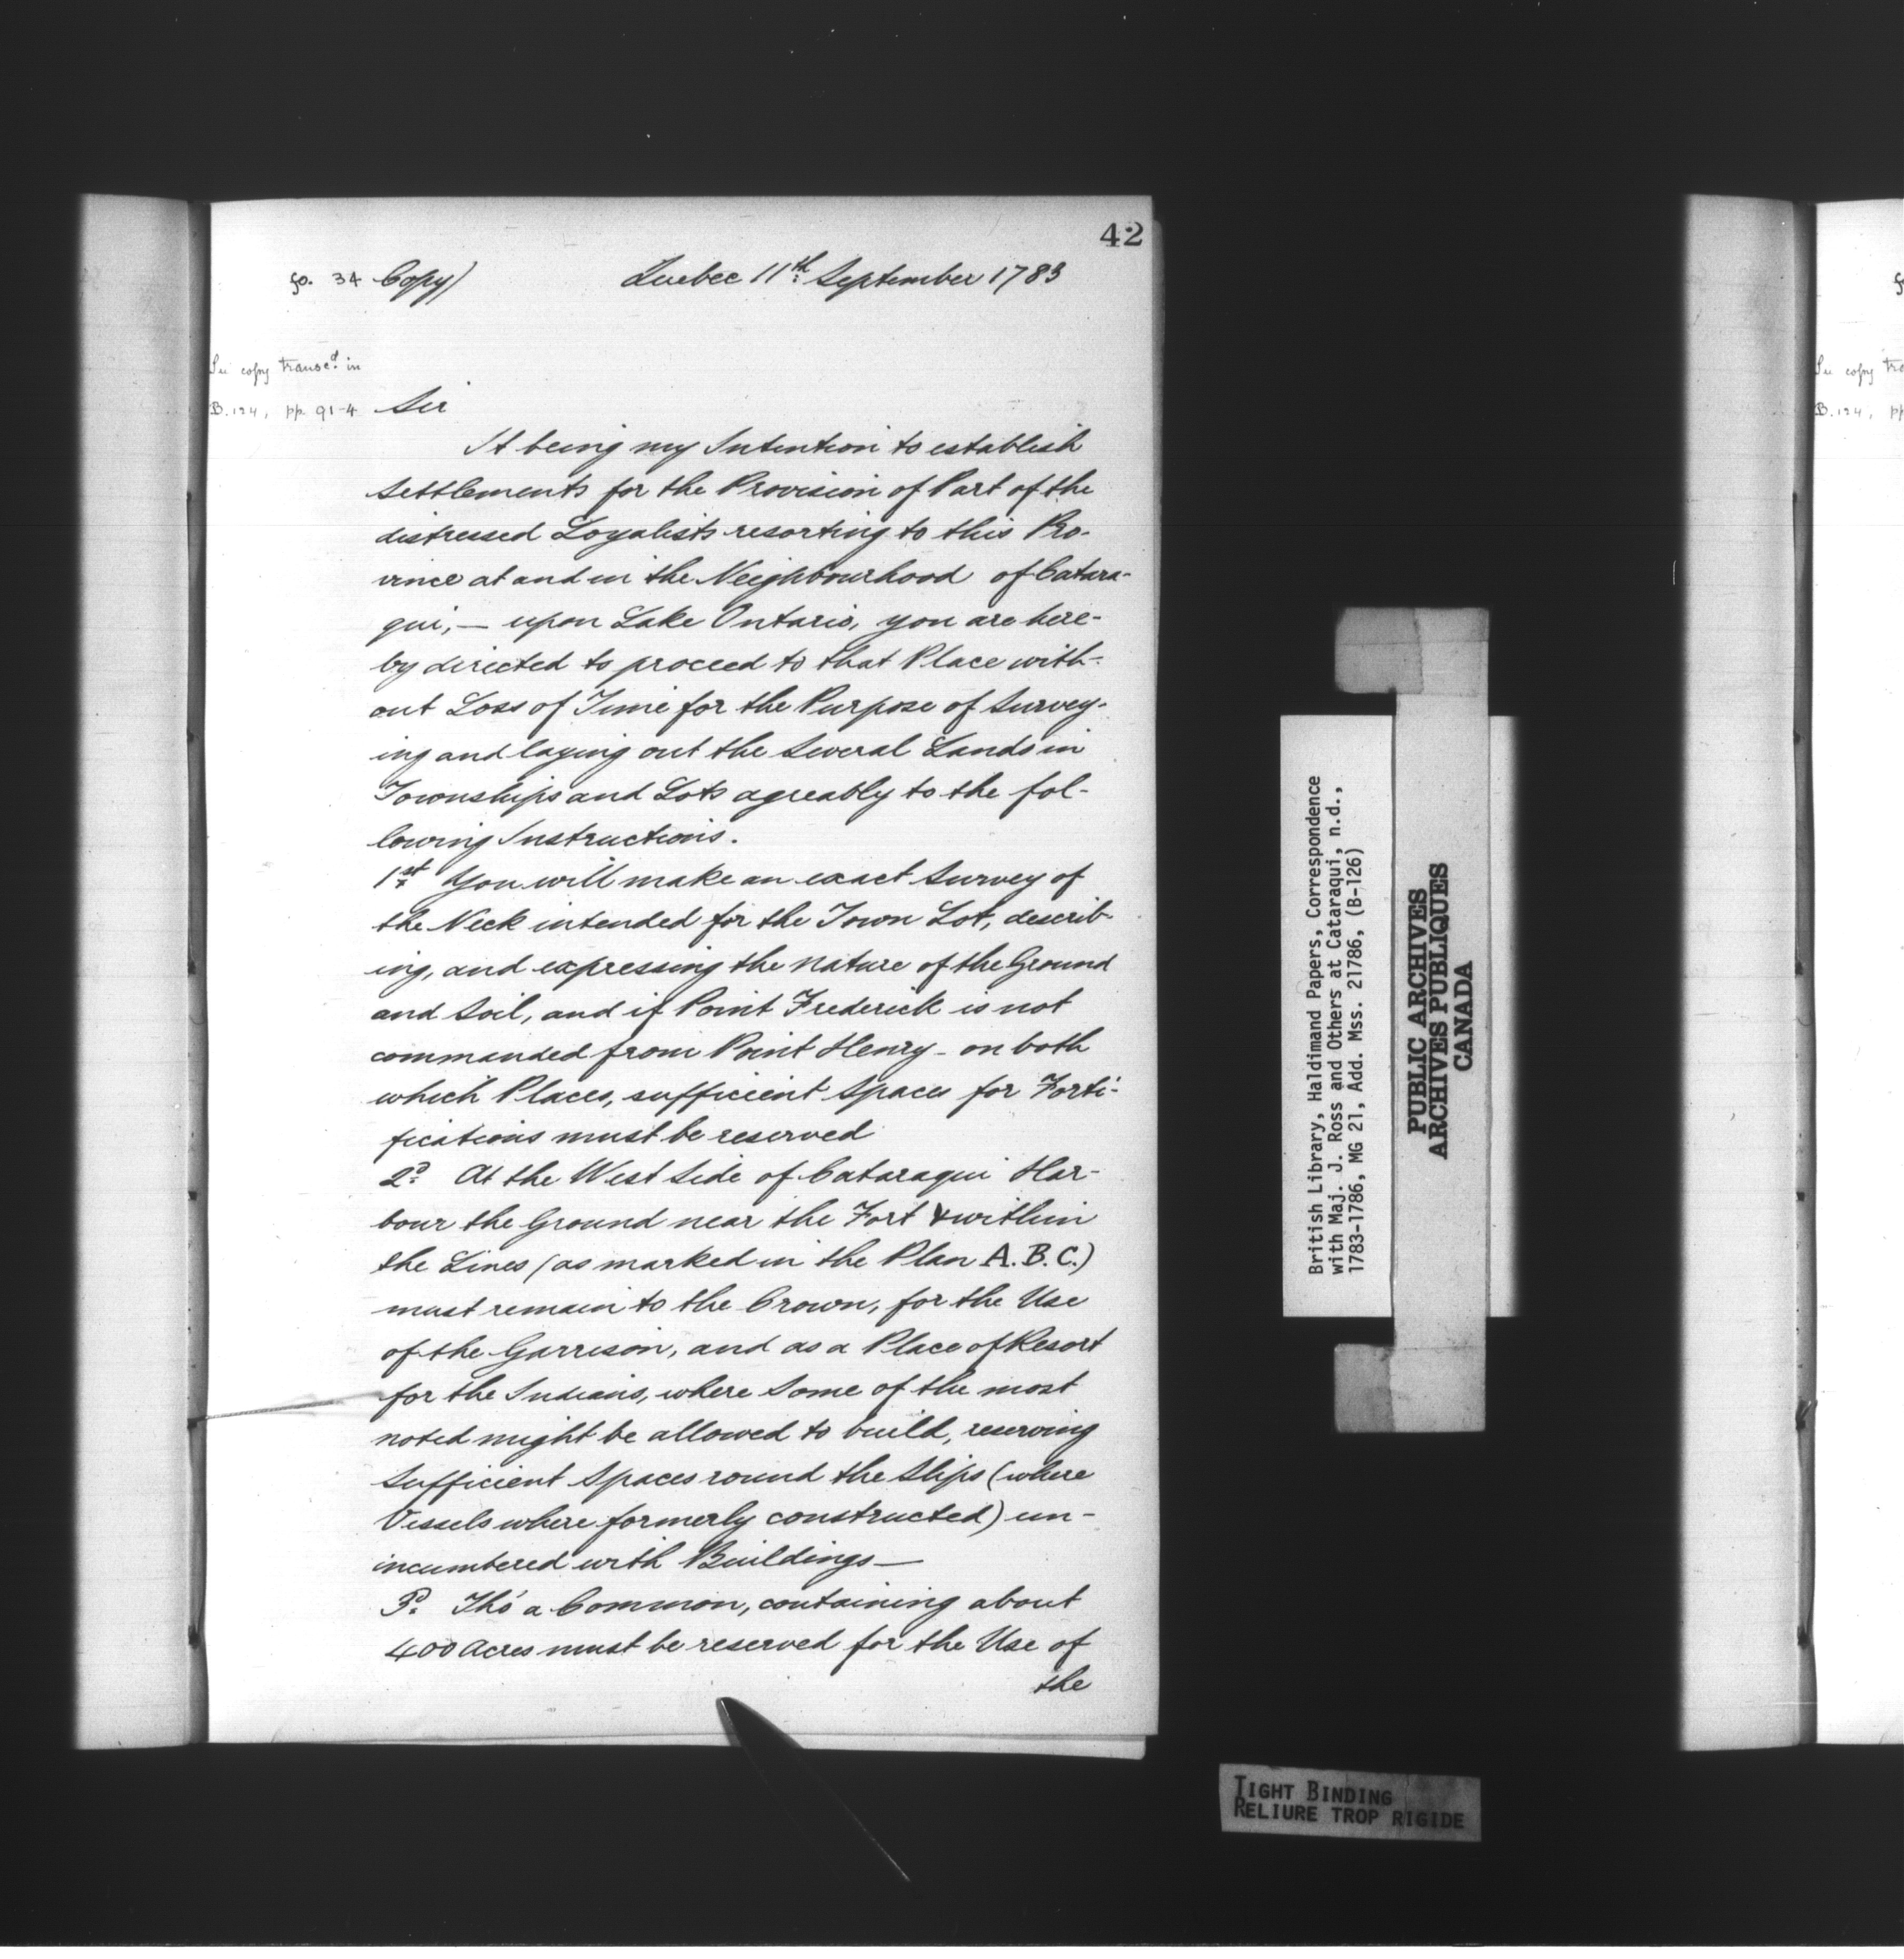 42
fo. 34 Copy) Quebec 11th September 1783
See copy transcd. in
B.124, pp. 91-4
Sir
It being my Intention to establish
Settlements for the Provision of Part of the
distressed Loyalists resorting to this Pro-
vince at and in the Neighbourhood of Catara-
qui, — upon Lake Ontario, you are here-
by directed to proceed to that Place with-
out Loss of Time for the Purpose of Survey-
ing and laying out the Several Lands in
Townships and Lots agreably to the fol-
lowing Instructions.
1st You will make an exact Survey of
the Neck intended for the Town Lot, describ-
ing, and expressing the nature of the Ground
and Soil, and if Point Frederick is not
commanded from Point Henry - on both
which Places, sufficient Spaces for Forti-
fications must be reserved
2d. At the West Side of Cataraqui Har-
bour the Ground near the Fort & within
the Lines (as marked in the Plan A.B.C.)
must remain to the Crown, for the Use
of the Garrison, and as a Place of Resort
for the Indians, where Some of the most
noted might be allowed to build, reserving
Sufficient Spaces round the Slips (where
Vessels where formerly constructed) un-
incumbered with Buildings —
3d. Tho' a Common, containing about
400 Acres must be reserved for the Use of
the
British Library, Haldimand Papers, Correspondence
with Maj. J. Ross and Others at Cataraqui, n.d.,
1783-1786, MG 21, Add. Mss. 21786, (B-126)
PUBLIC ARCHIVES
ARCHIVES PUBLIQUES
CANADA
TIGHT BINDING
RELIURE TROP RIGIDE
See copy
B.124, pp